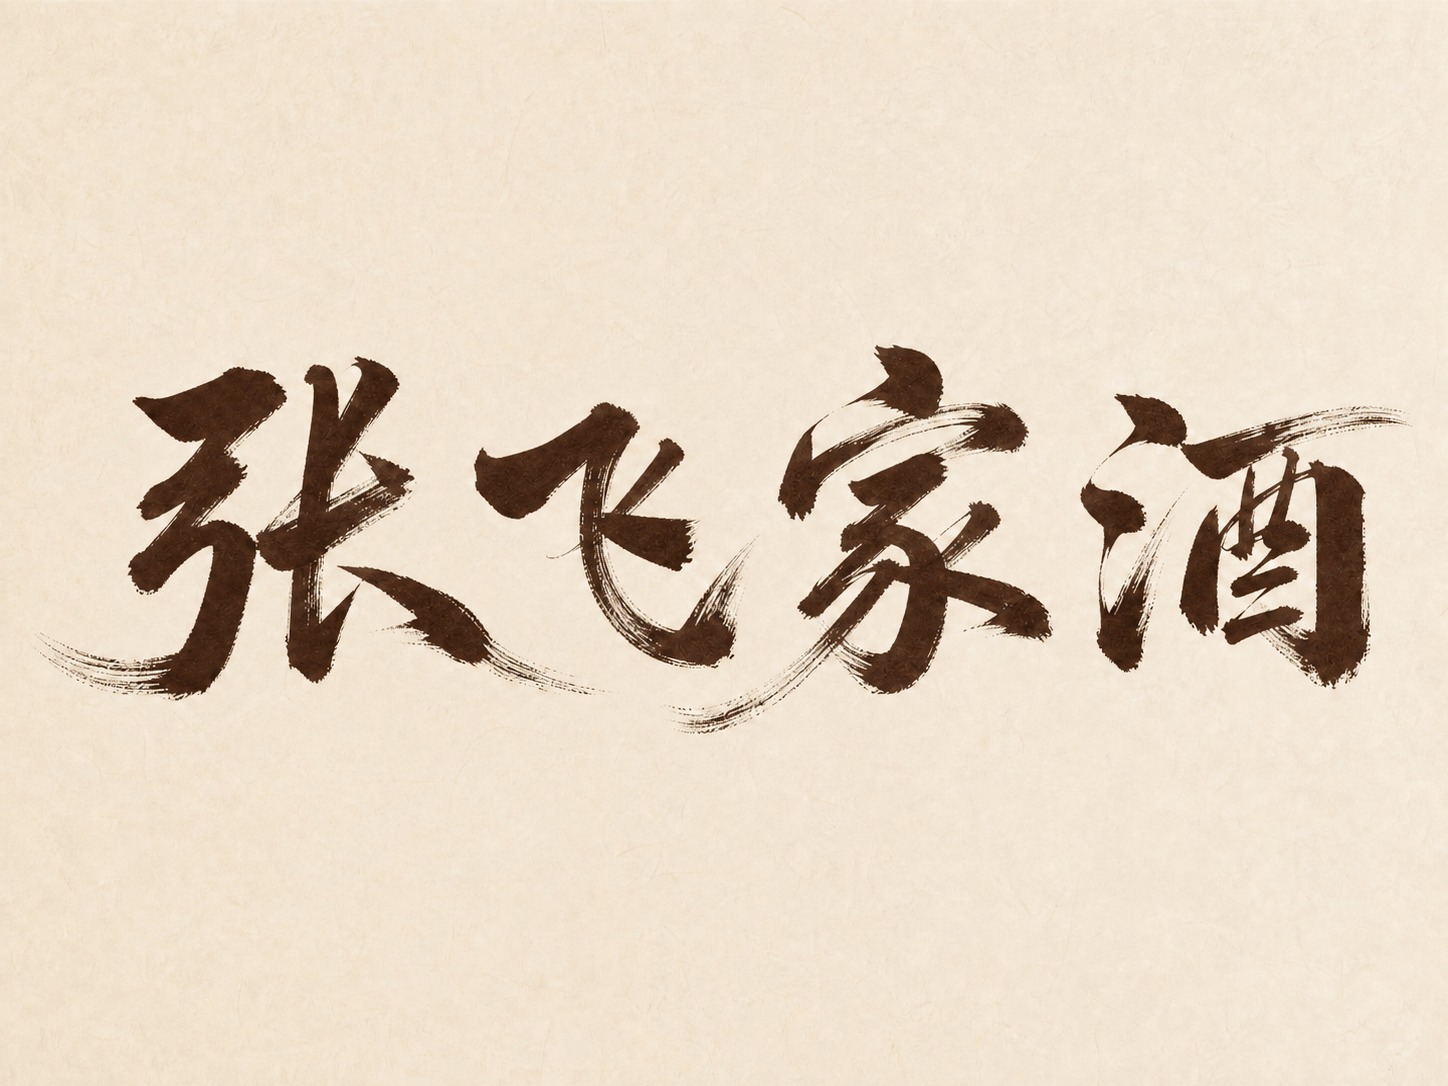 张飞家酒